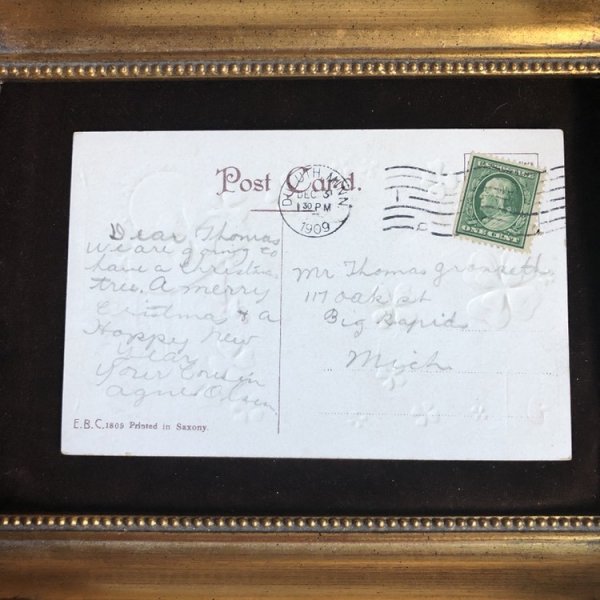 Post Card.
DULUTH, MINN.
DEC 5
130 PM
1909
U.S. POSTAGE
ONE CENT
Dear Thomas
We are going to
have a Christmas
tree. A merry
Cristmas & a
Happy New
Year
Your Cousin
Agnes Olson
Mr Thomas
117 Oak st
Big Rapids
Mich
E.B.C. 1809 Printed in Saxony.